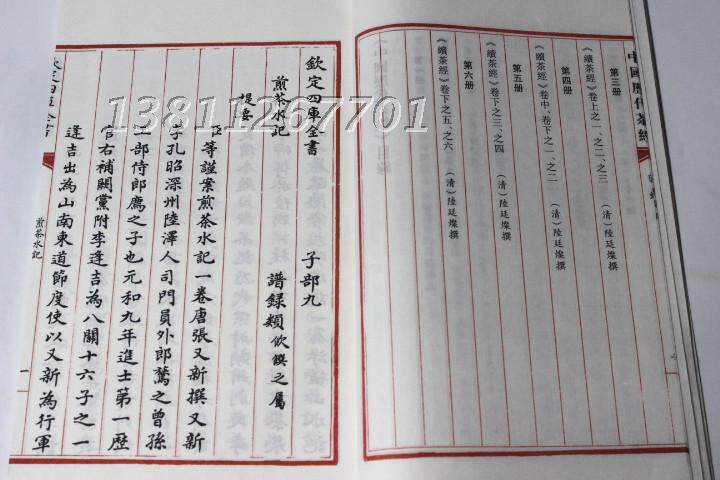 中國歷代茶經
第三册
《續茶經》卷上之一、之二、之三 （清）陸廷燦撰
第四册
《續茶經》卷中、卷下之一、之二 （清）陸廷燦撰
第五册
《續茶經》卷下之三、之四 （清）陸廷燦撰
第六册
《續茶經》卷下之五、之六 （清）陸廷燦撰
欽定四庫全書 子部九
煎茶水記 譜録類飲饌之屬
提要
臣等謹案煎茶水記一卷唐張又新撰又新
字孔昭深州陸澤人司門員外郎鷟之曾孫
工部侍郎薦之子也元和九年進士第一歷
官右補闕黨附李逢吉為八關十六子之一
逢吉出為山南東道節度使以又新為行軍
欽定四庫全書
煎茶水記
一
13811267701